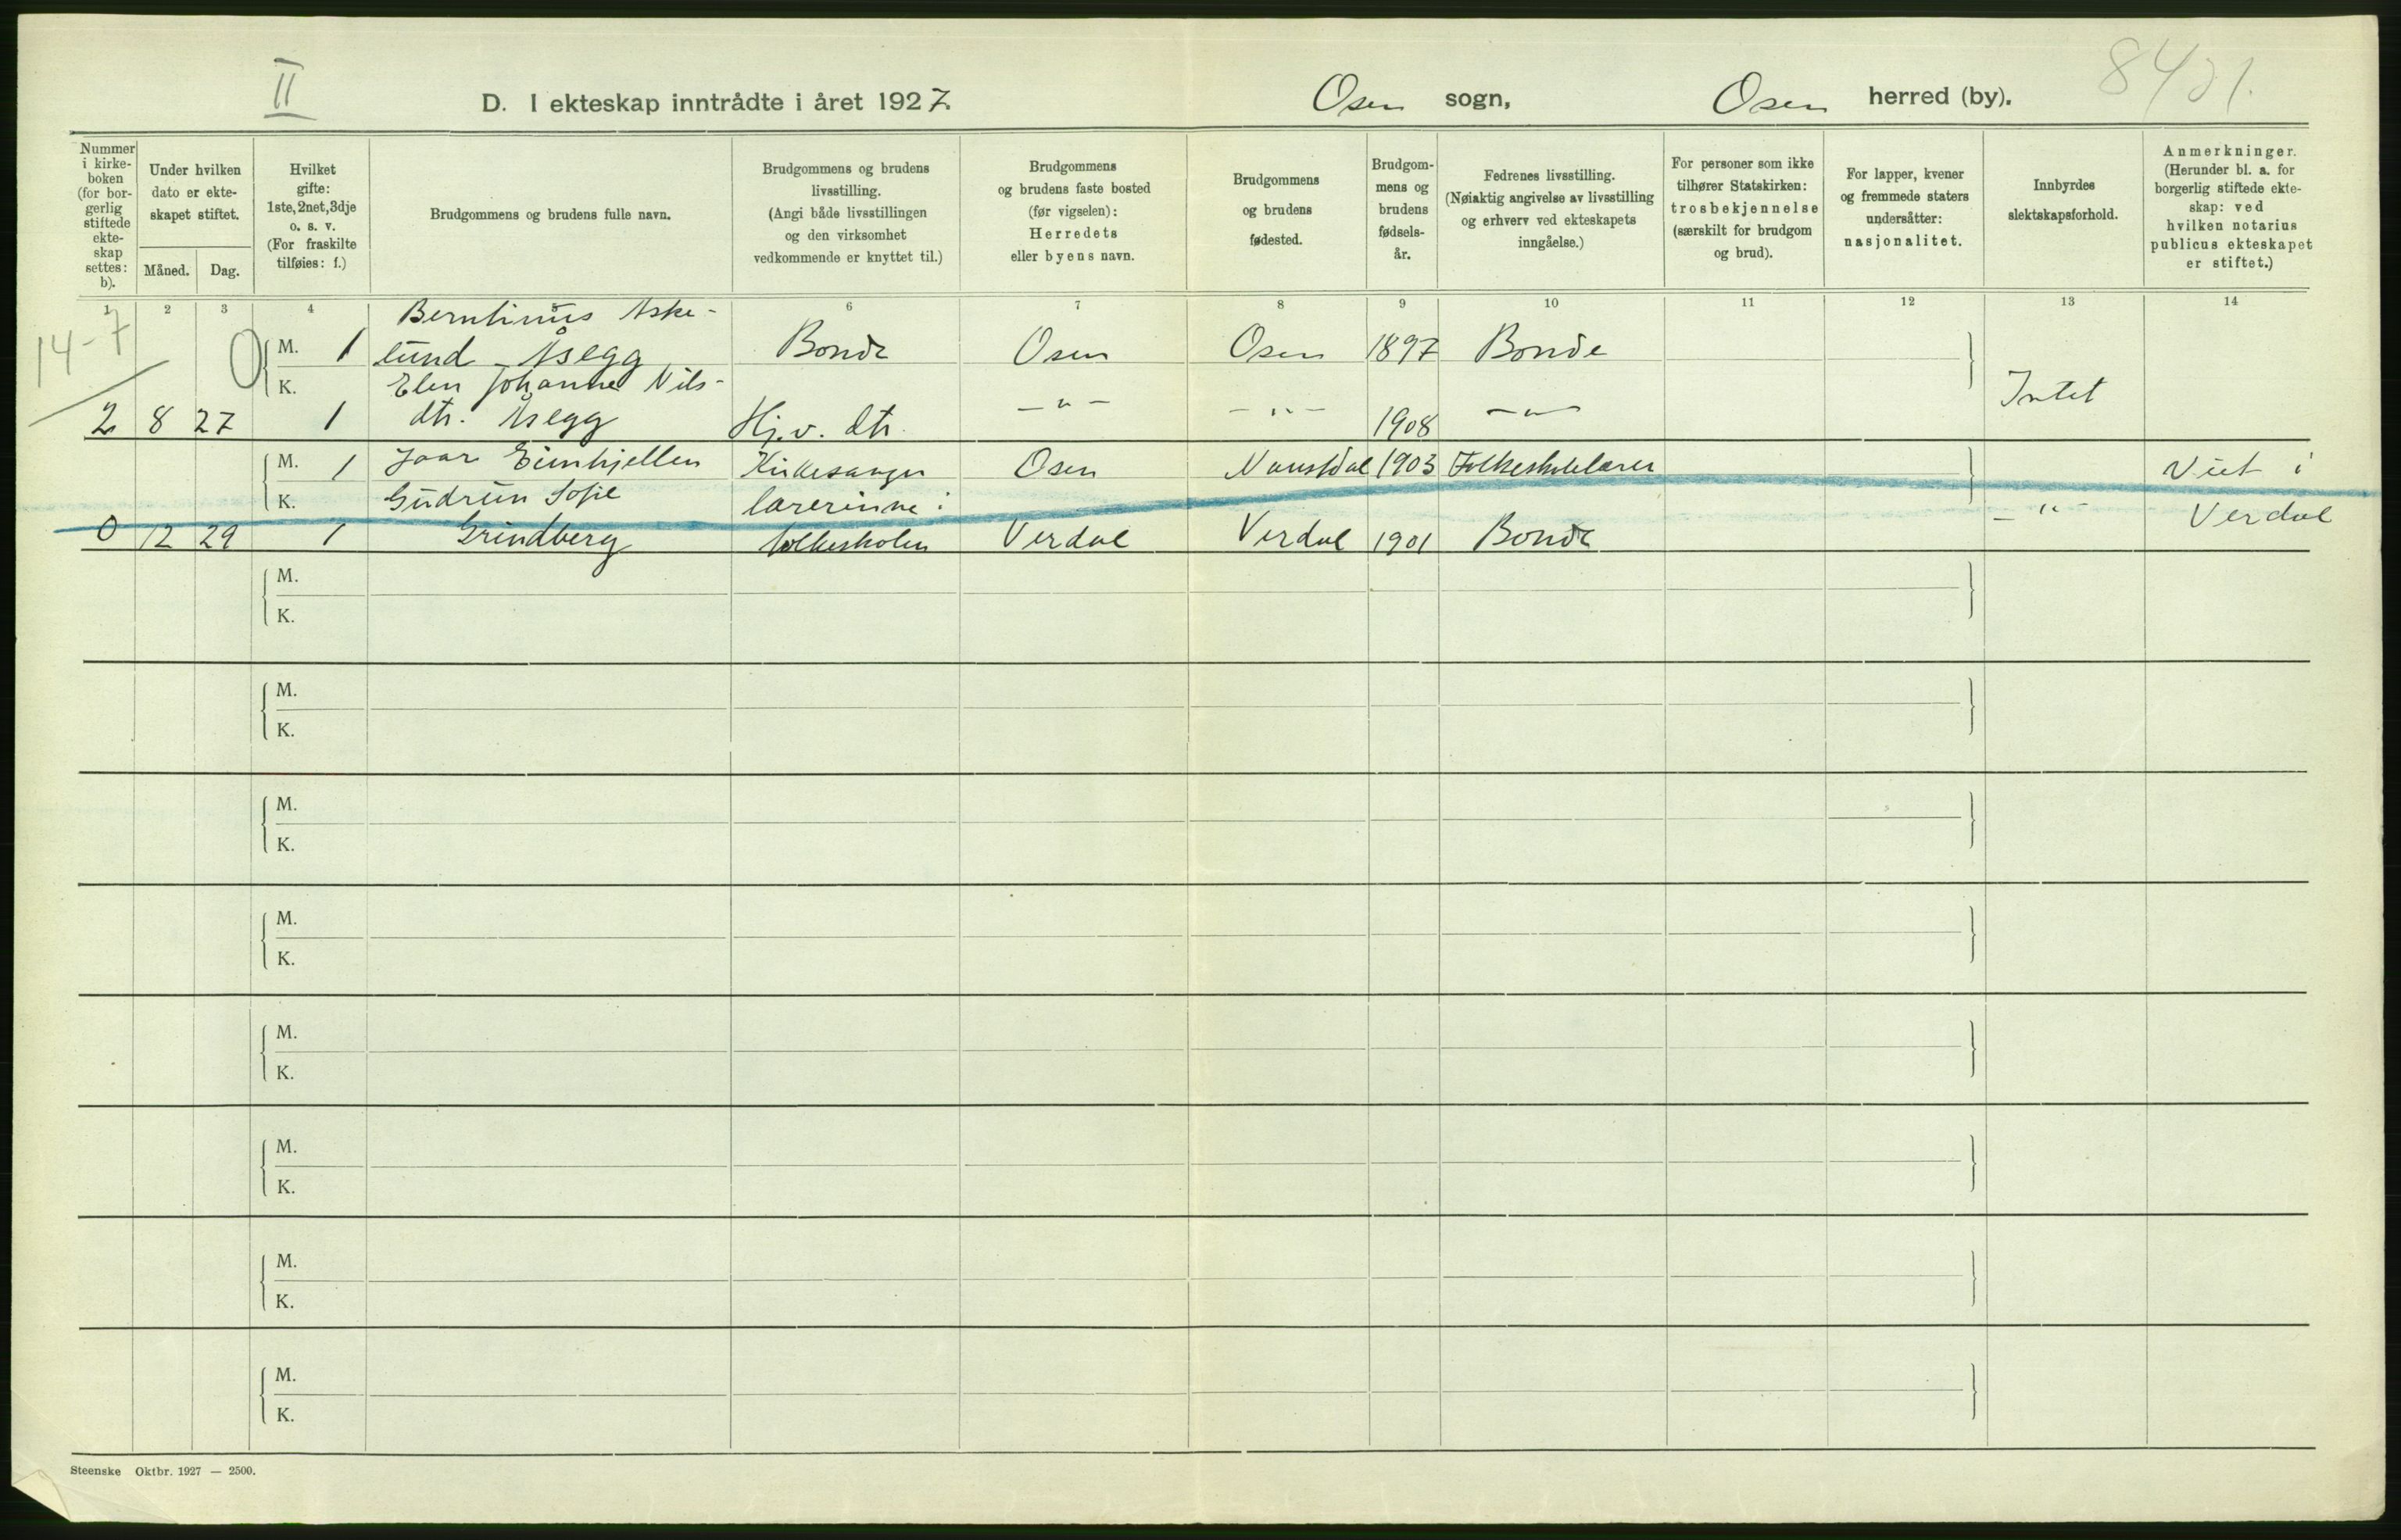 II
D. I ekteskap inntrådte i året 1927.
Osen sogn,
Osen herred (by).
Nummer i kirke-boken (for bor-gerlig stiftede ekte-skap settes: b).
Under hvilken dato er ekte-skapet stiftet.
Måned.
Dag.
Hvilket gifte: 1ste, 2net, 3dje o. s. v. (For fraskilte tilføies: f.)
Brudgommens og brudens fulle navn.
Brudgommens og brudens livsstilling. (Angi både livsstillingen og den virksomhet vedkommende er knyttet til.)
Brudgommens og brudens faste bosted (før vigselen): Herredets eller byens navn.
Brudgommens og brudens fødested.
Brudgom-mens og brudens fødsels-år.
Fedrenes livsstilling. (Nøiaktig angivelse av livsstilling og erhverv ved ekteskapets inngåelse.)
For personer som ikke tilhører Statskirken: trosbekjennelse (særskilt for brudgom og brud).
For lapper, kvener og fremmede staters undersåtter: nasjonalitet.
Innbyrdes slektskapsforhold.
Anmerkninger. (Herunder bl. a. for borgerlig stiftede ekte-skap: ved hvilken notarius publicus ekteskapet er stiftet.)
1 2 3 4 6 7 8 9 10 11 12 13 14
14-7
Berntinus Aske-
M. 1 lund Åsegg Bonde Osen Osen 1897 Bonde
K. Elen Johanne Nils-
2 8 27 1 dtr. Åsegg Hj.v. dtr. -"- -"- 1908 -"- Intet
M. 1 Eimhjellen Kirkesanger Osen Naustdal 1903 Folkeskolelærer Viet i
K. Gudrun Sofie lærerinne i
0 12 29 1 Grindberg folkeskolen Verdal Verdal 1901 Bonde -"- Verdal
M.
K.
M.
K.
M.
K.
M.
K.
M.
K.
M.
K.
M.
K.
M.
K.
Steenske Oktbr. 1927 — 2500.